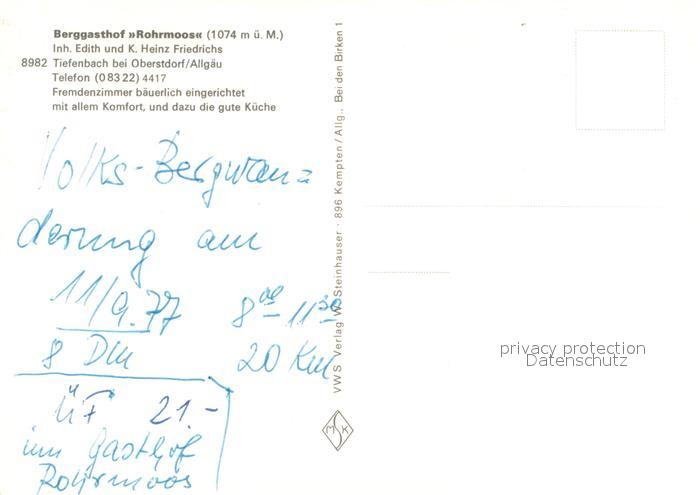 Berggasthof »Rohrmoos« (1074 m ü. M.)
Inh. Edith und K. Heinz Friedrichs
8982 Tiefenbach bei Oberstdorf/Allgäu
Telefon (0 83 22) 4417
Fremdenzimmer bäuerlich eingerichtet
mit allem Komfort, und dazu die gute Küche
Volks-Bergwan=
derung am
11/9.77 8 00 11 30
8 DM 20 Km
ÜF 21.-
im Gasthof
Rohrmoos
VWS Verlag W. Steinhauser · 896 Kempten/Allg., Bei den Birken 1
MSK
privacy protection
Datenschutz